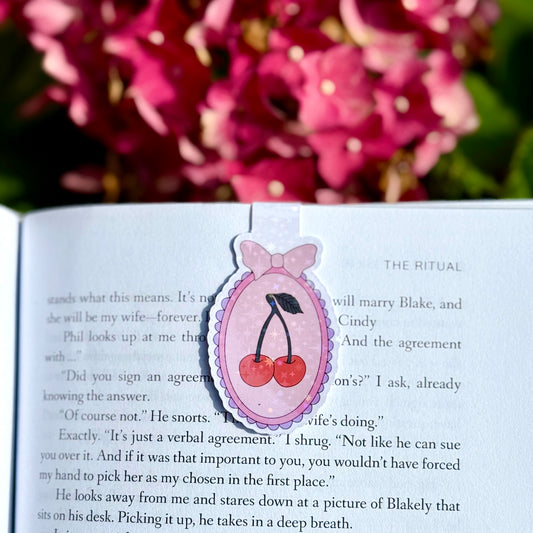 THE RITUAL
stands what this means. It's no will marry Blake, and
she will be my wife—forever. Cindy
Phil looks up at me thro And the agreement
with ..."
"Did you sign an agreem on's?" I ask, already
knowing the answer.
"Of course not." He snorts. "T wife's doing."
Exactly. "It's just a verbal agreement." I shrug. "Not like he can sue
you over it. And if it was that important to you, you wouldn't have forced
my hand to pick her as my chosen in the first place."
He looks away from me and stares down at a picture of Blakely that
sits on his desk. Picking it up, he takes in a deep breath.